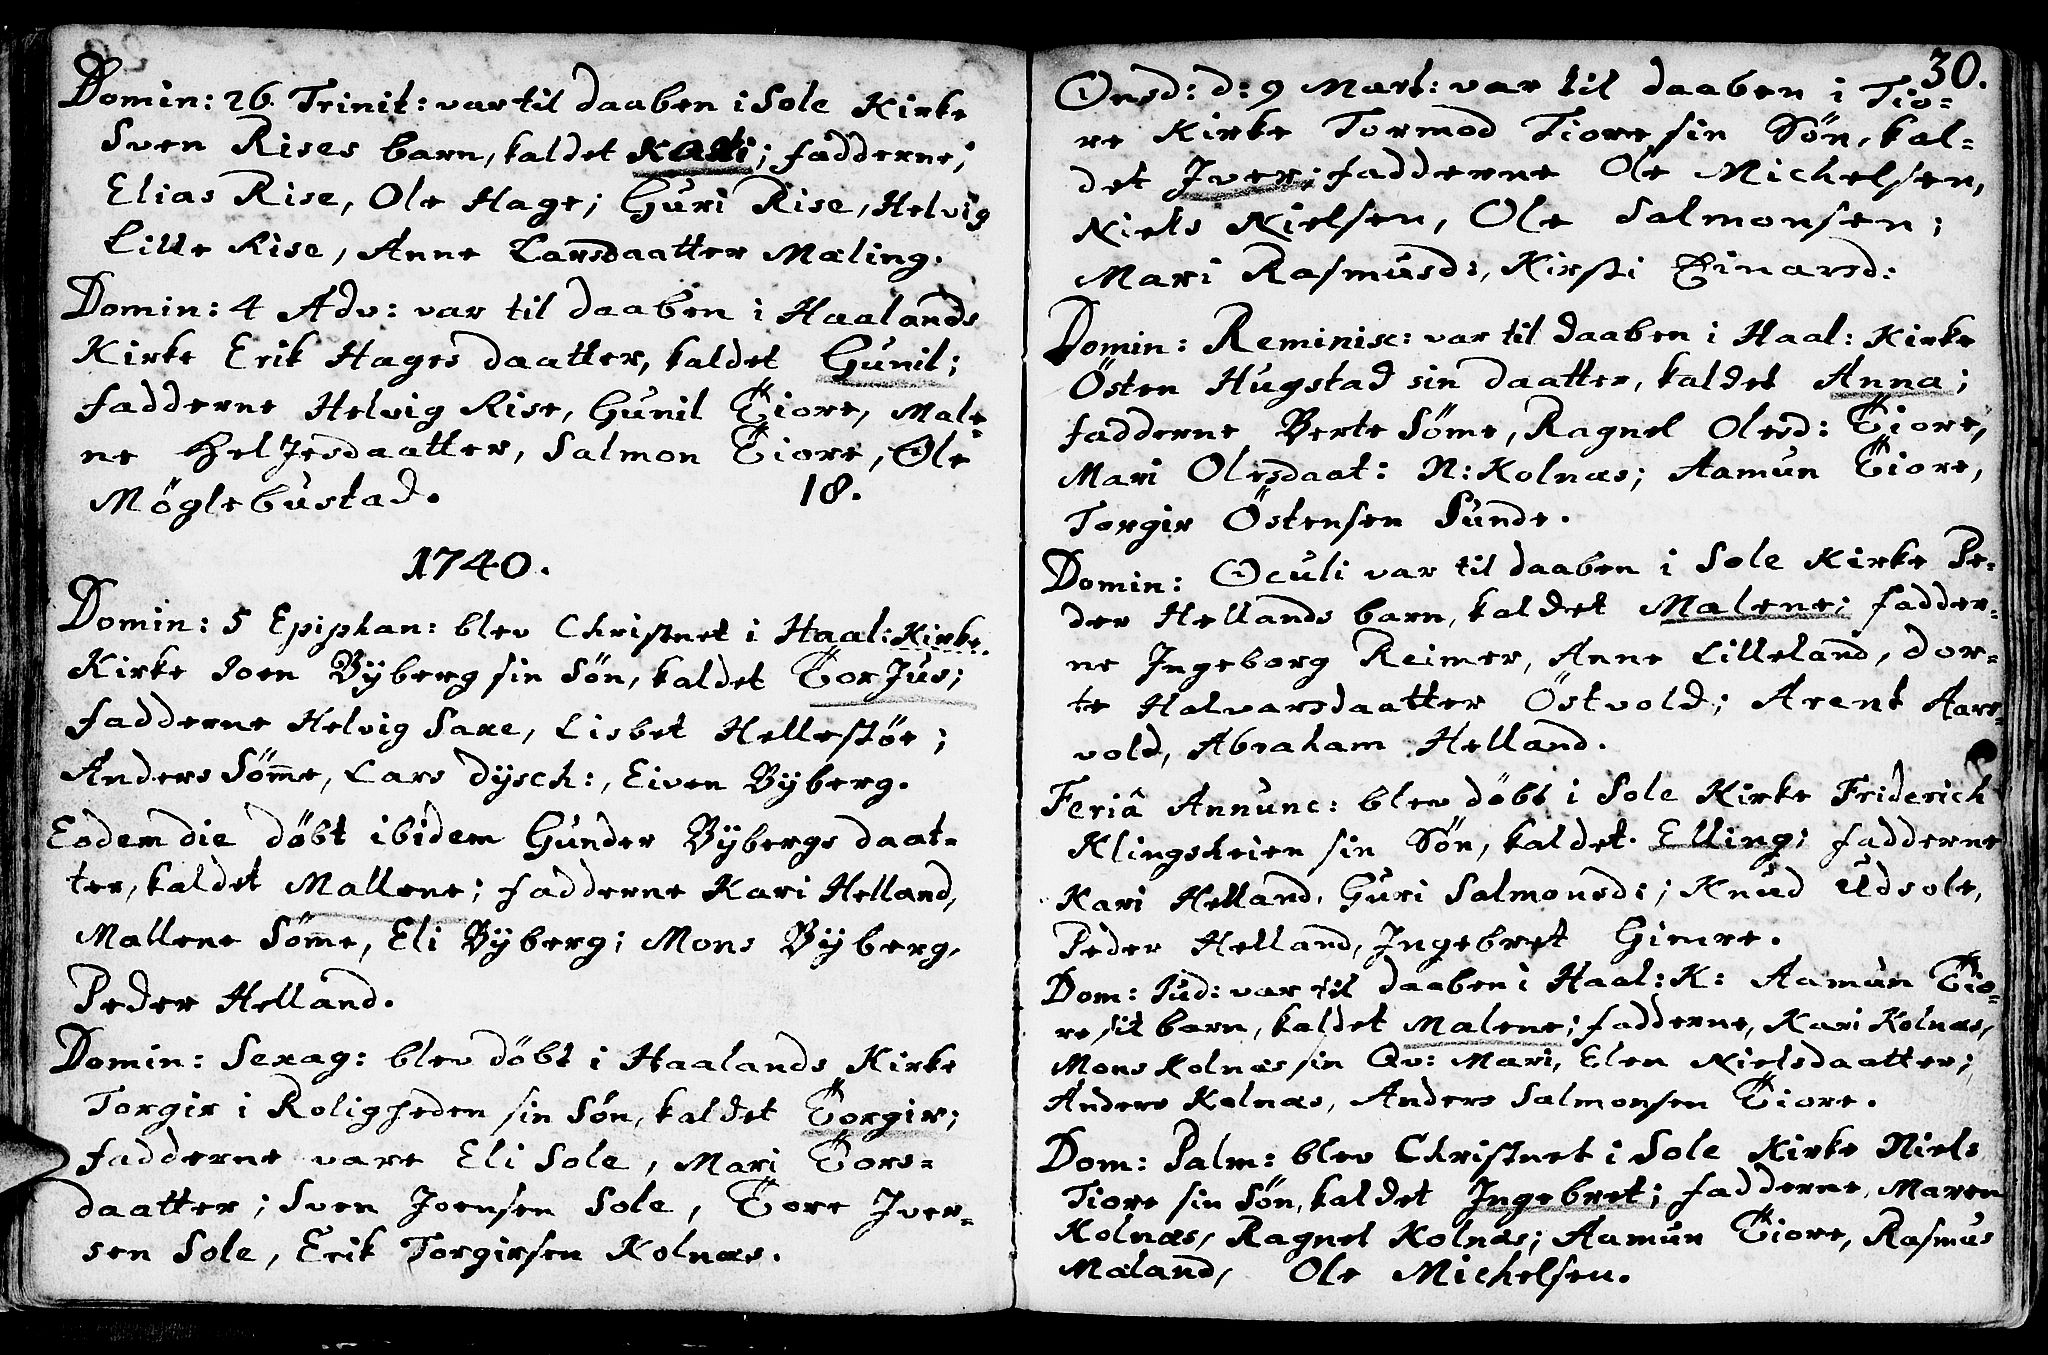 Domin: 26. Trinit: var til daaben i Sole Kirke
Sven Rises barn, kaldet Kari; fadderne;
Elias Rise, Ole Hage; Guri Rise, Helvig
Lille Rise, Anne Larsdaatter Mæling.
Domin: 4 Adv: var til daaben i Haalands
Kirke Erik Hages daatter, kaldet Gunil;
fadderne Helvig Rise, Gunil Tiore, Male-
ne HelJesdaatter, Salmon Tiore, Ole
Möglebustad. 18.
1740.
Domin: 5 Epiphan: blev Christnet i Haal: Kirke.
Kirke Joen Bÿberg sin Sön, kaldet TorJus;
fadderne Helvig Saxe, Lisbet Hellestöe;
Anders Söm̅e, Lars Dÿsch:, Eiven Bÿberg.
Eodem die döbt ibidem Gunder Bÿbergs daat-
ter, kaldet Mallene; fadderne Kari Helland,
Mallene Söm̅e, Eli Bÿberg; Mons Bÿberg,
Peder Helland.
Domin: Sexag: blev döbt i Haalands Kirke
Torgir i Roligheden sin Sön, kaldet Torgir;
fadderne vare Eli Sole, Mari Tors-
daatter; Sven Joensen Sole, Tore Iver-
sen Sole, Erik Torgirsen Kolnæs.
30.
Onsd: d: 9 Mart: var til daaben i Tio-
re Kirke Tormod Tiore sin Sön, kal-
det Iver; fadderne Ole Michelsen,
Niels Nielsen, Ole Salmonsen;
Mari Rasmusd:, Kirsti Einarsd:
Domin: Reminisc: var til daaben i Haal: Kirke
Östen Hugstad sin daatter, kaldet Anna;
fadderne Berte Söme, Ragnel Olesd: Tiore,
Mari Olesdaat: N: Kolnæs; Aamun Tiore,
Torgir Östensen Sunde.
Domin: Oculi var til daaben i Sole Kirke Pe-
der Hellands barn, kaldet Malene; fadder-
ne Ingeborg Reimer, Anne Lilleland, Dor-
te Halvarsdaatter Östvold; Arent Aars-
vold, Abraham Helland.
Feriâ Annunc: blev döbt i Sole Kirke Friderich
Klingsheien sin Sön, kaldet Elling; fadderne
Kari Helland, Guri Salmonsd:; Knud Udsole,
Peder Helland, Ingebret Giemre.
Dom: Jud: var til daaben i Haal: K: Aamun Tio-
re sit barn, kaldet Malene; fadderne, Kari Kolnæs,
Mons Kolnæs sin Qv: Mari, Elen Nielsdaatter;
Anders Kolnæs, Anders Salmonsen Tiore.
Dom: Palm: blev Christnet i Sole Kirke Niels
Tiore sin Sön, kaldet Ingebret; fadderne, Maren
Kolnæs, Ragnel Kolnæs; Aamun Tiore, Rasmus
Mæland, Ole Michelsen.